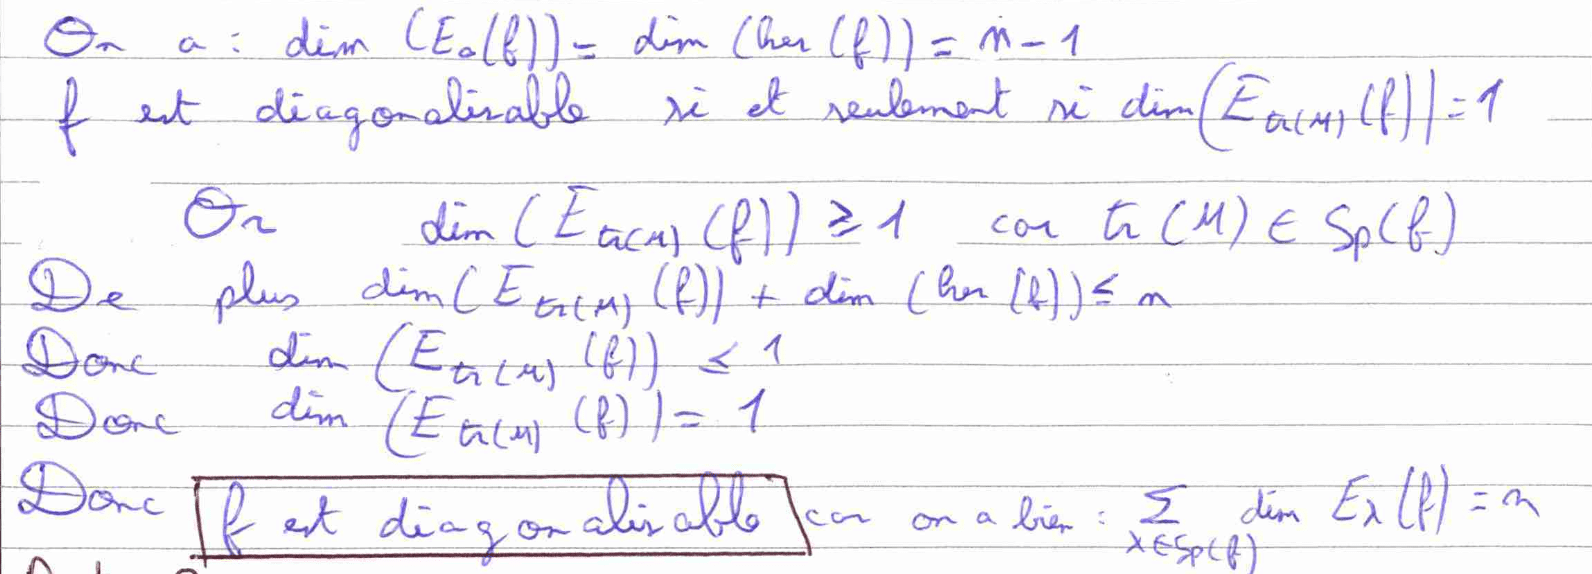 On a : dim (E₀(f)) = dim (ker (f)) = n - 1
f est diagonalisable si et seulement si dim(E_tr(M) (f)) = 1
Or dim (E_tr(M) (f)) ≥ 1 car tr (M) ∈ Sp(f)
De plus dim(E_tr(M) (f)) + dim (ker (f)) ≤ n
Donc dim (E_tr(M) (f)) ≤ 1
Donc dim (E_tr(M) (f)) = 1
Donc f est diagonalisable car on a bien : ∑_λ∈Sp(f) dim E_λ(f) = n